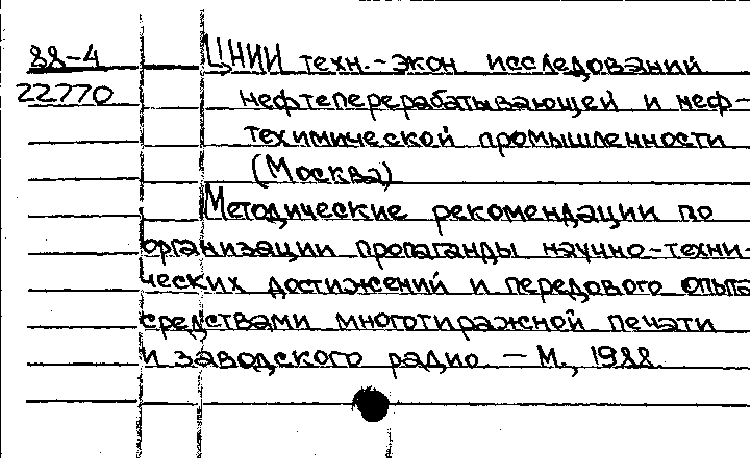 88-4 ЦНИИ техн.-экон исследований
22770 нефтеперерабатывающей и неф-
техимической промышленности
(Москва)
Методические рекомендации по
организации пропаганды научно-техни-
ческих достижений и передового опыта
средствами многотиражной печати
и заводского радио. - М., 1988.